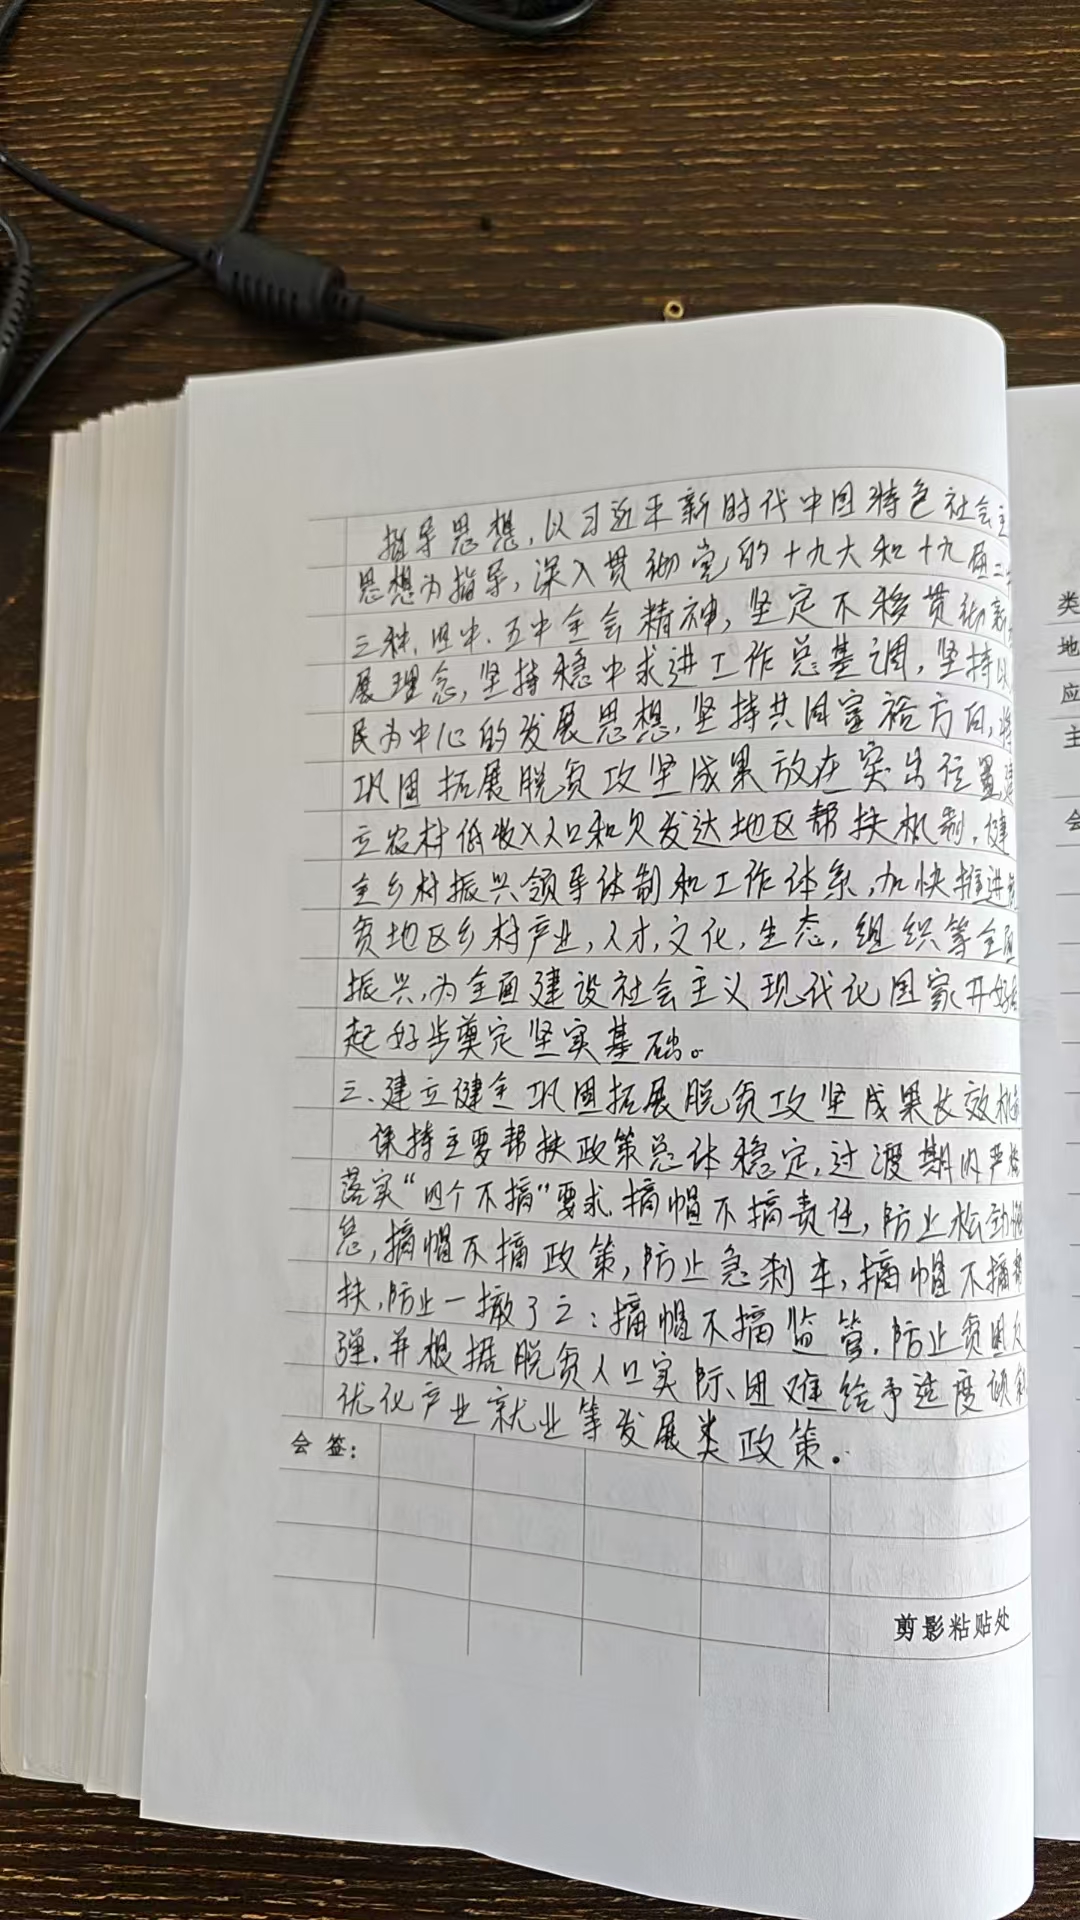 指导思想,以习近平新时代中国特色社会主
思想为指导,深入贯彻党的十九大和十九届二
三种、四中、五中全会精神,坚定不移贯彻新
展理念,坚持稳中求进工作总基调,坚持以
民为中心的发展思想,坚持共同富裕方向,将
巩固拓展脱贫攻坚成果放在突出位置,建
立农村低收入人口和欠发达地区帮扶机制,健
全乡村振兴领导体制和工作体系,加快推进脱
贫地区乡村产业,人才,文化,生态,组织等全面
振兴,为全面建设社会主义现代化国家开好局
起好步奠定坚实基础。
三、建立健全巩固拓展脱贫攻坚成果长效机制
保持主要帮扶政策总体稳定,过渡期内严格
落实“四个不摘”要求,摘帽不摘责任,防止松劲懈
怠,摘帽不摘政策,防止急刹车,摘帽不摘帮
扶,防止一撤了之:摘帽不摘监管,防止贫困反
弹,并根据脱贫人口实际、困难给予适度倾斜
优化产业就业等发展类政策。
会签:
剪影粘贴处
类
地
应
主
会